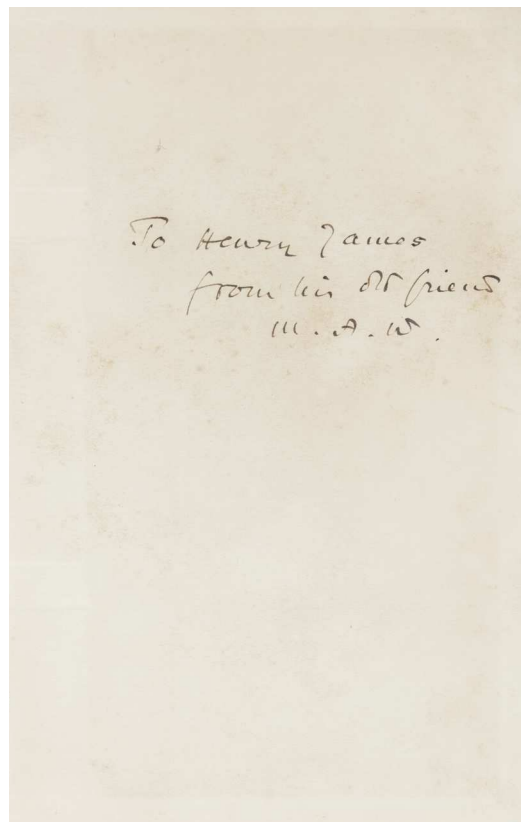 To Henry James
from his old friend
M. A. W.